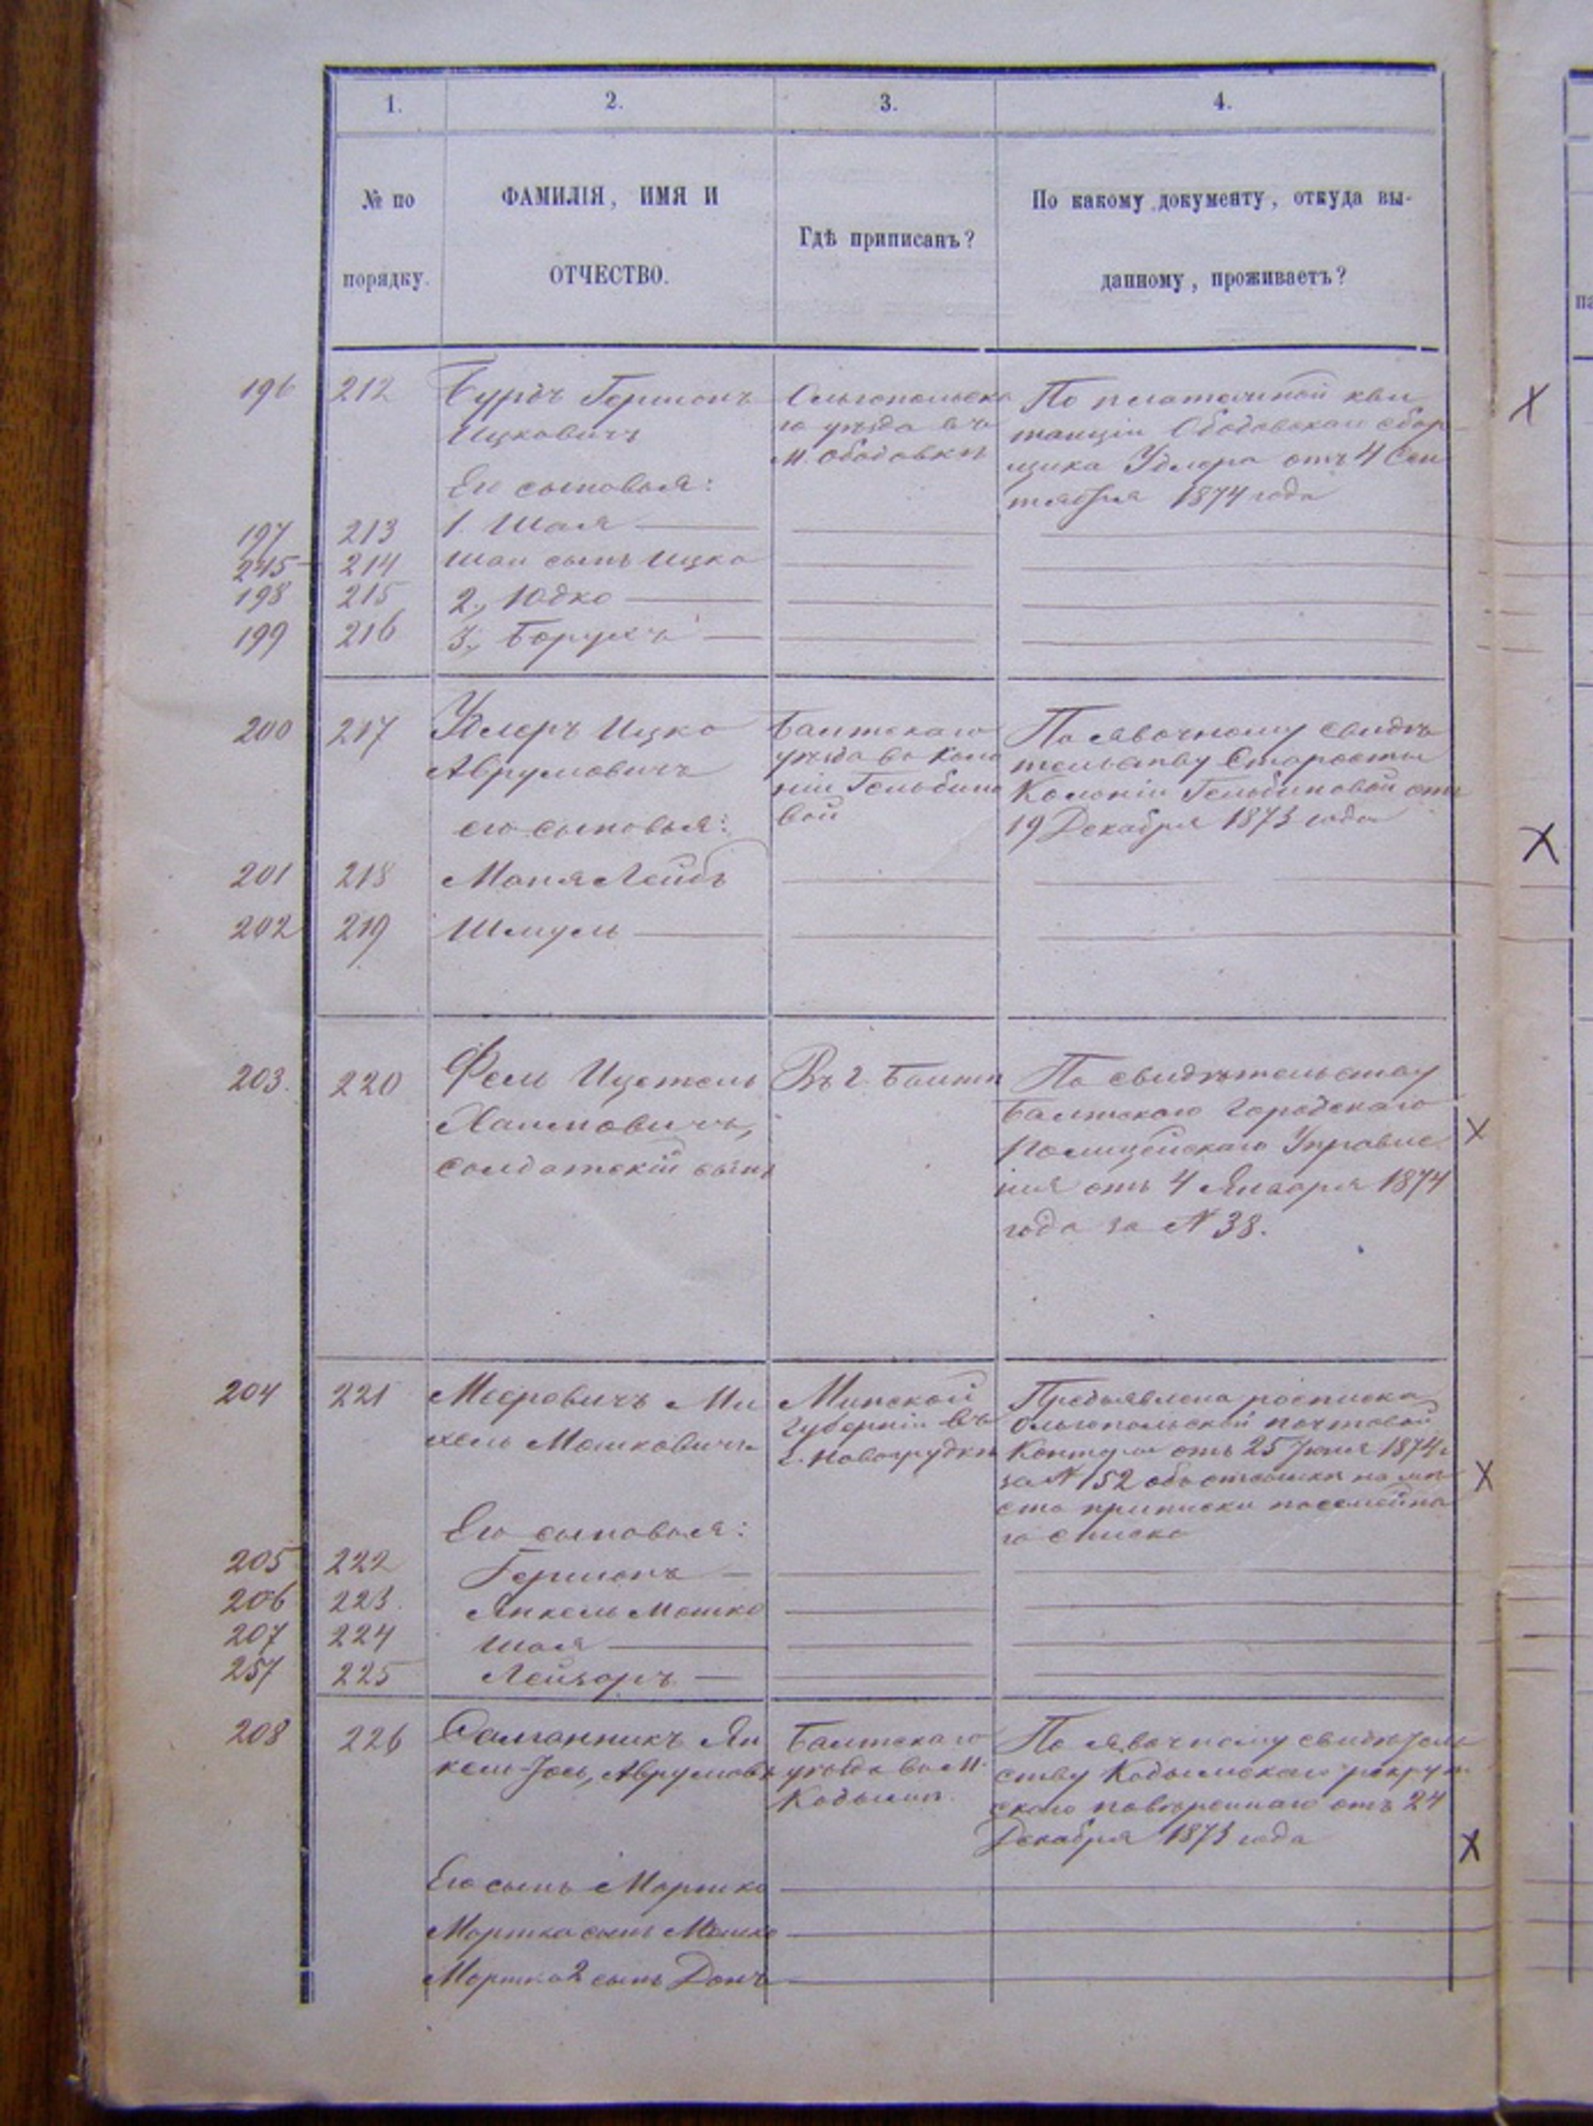 1.
2.
3.
4.
№ по
порядку.
ФАМИЛІЯ, ИМЯ И
ОТЧЕСТВО.
Гдѣ приписанъ?
По какому документу, откуда вы-
данному, проживаетъ?
196 212 Гершонъ
Ицковичъ
Его сыновья:
Ольгопольска
го уѣзда въ
м. Ободовкѣ
По платежной кви
танціи Ободовскаго сбор
щика Удлера отъ 4 Сен
тября 1874 года
197 213 1. Шая
245 214 Шаи сынъ Ицко
198 215 2., Юдко
199 216 3., Борухъ
200 217 Удлеръ Ицко
Аврумовичъ
его сыновья:
Балтскаго
уѣзда въ Коло
ніи Гельбино
вой
По явочному свидѣ
тельству Старосты
Колоніи Гельбиновой отъ
19 Декабря 1873 года
201 218 Маня Лейбъ
202 219 Шмуль
203. 220
Хаимовичъ,
солдатскій сынъ
Въ г. Балтѣ
По свидѣтельству
Балтскаго Городскаго
Полицейскаго Управле
нія отъ 4 Января 1874
года за № 38.
204 221 Мееровичъ Ми
хель Мошковичъ
Его сыновья:
Минской
губерніи въ
г. Новогрудкѣ
Предъявлена росписка
Ольгопольской почтовой
Конторы отъ 25 Іюня 1874 г
за № 152 объ отсылкѣ на мѣ
сто приписки посемейна
го списка
205 222 Гершонъ
206 223. Янкель Мошко
207 224 Шая
257 225 Лейзоръ
208 226 Ян
кель-Іось, Аврумовъ
Балтскаго
уѣзда въ м.
Кодымѣ.
По явочному свидѣтель
ству Кодымскаго рекрут
скаго повѣреннаго отъ 24
Декабря 1873 года
Его сынъ Мортко
Мортка сынъ Мошко
Мортка 2 сынъ Донъ